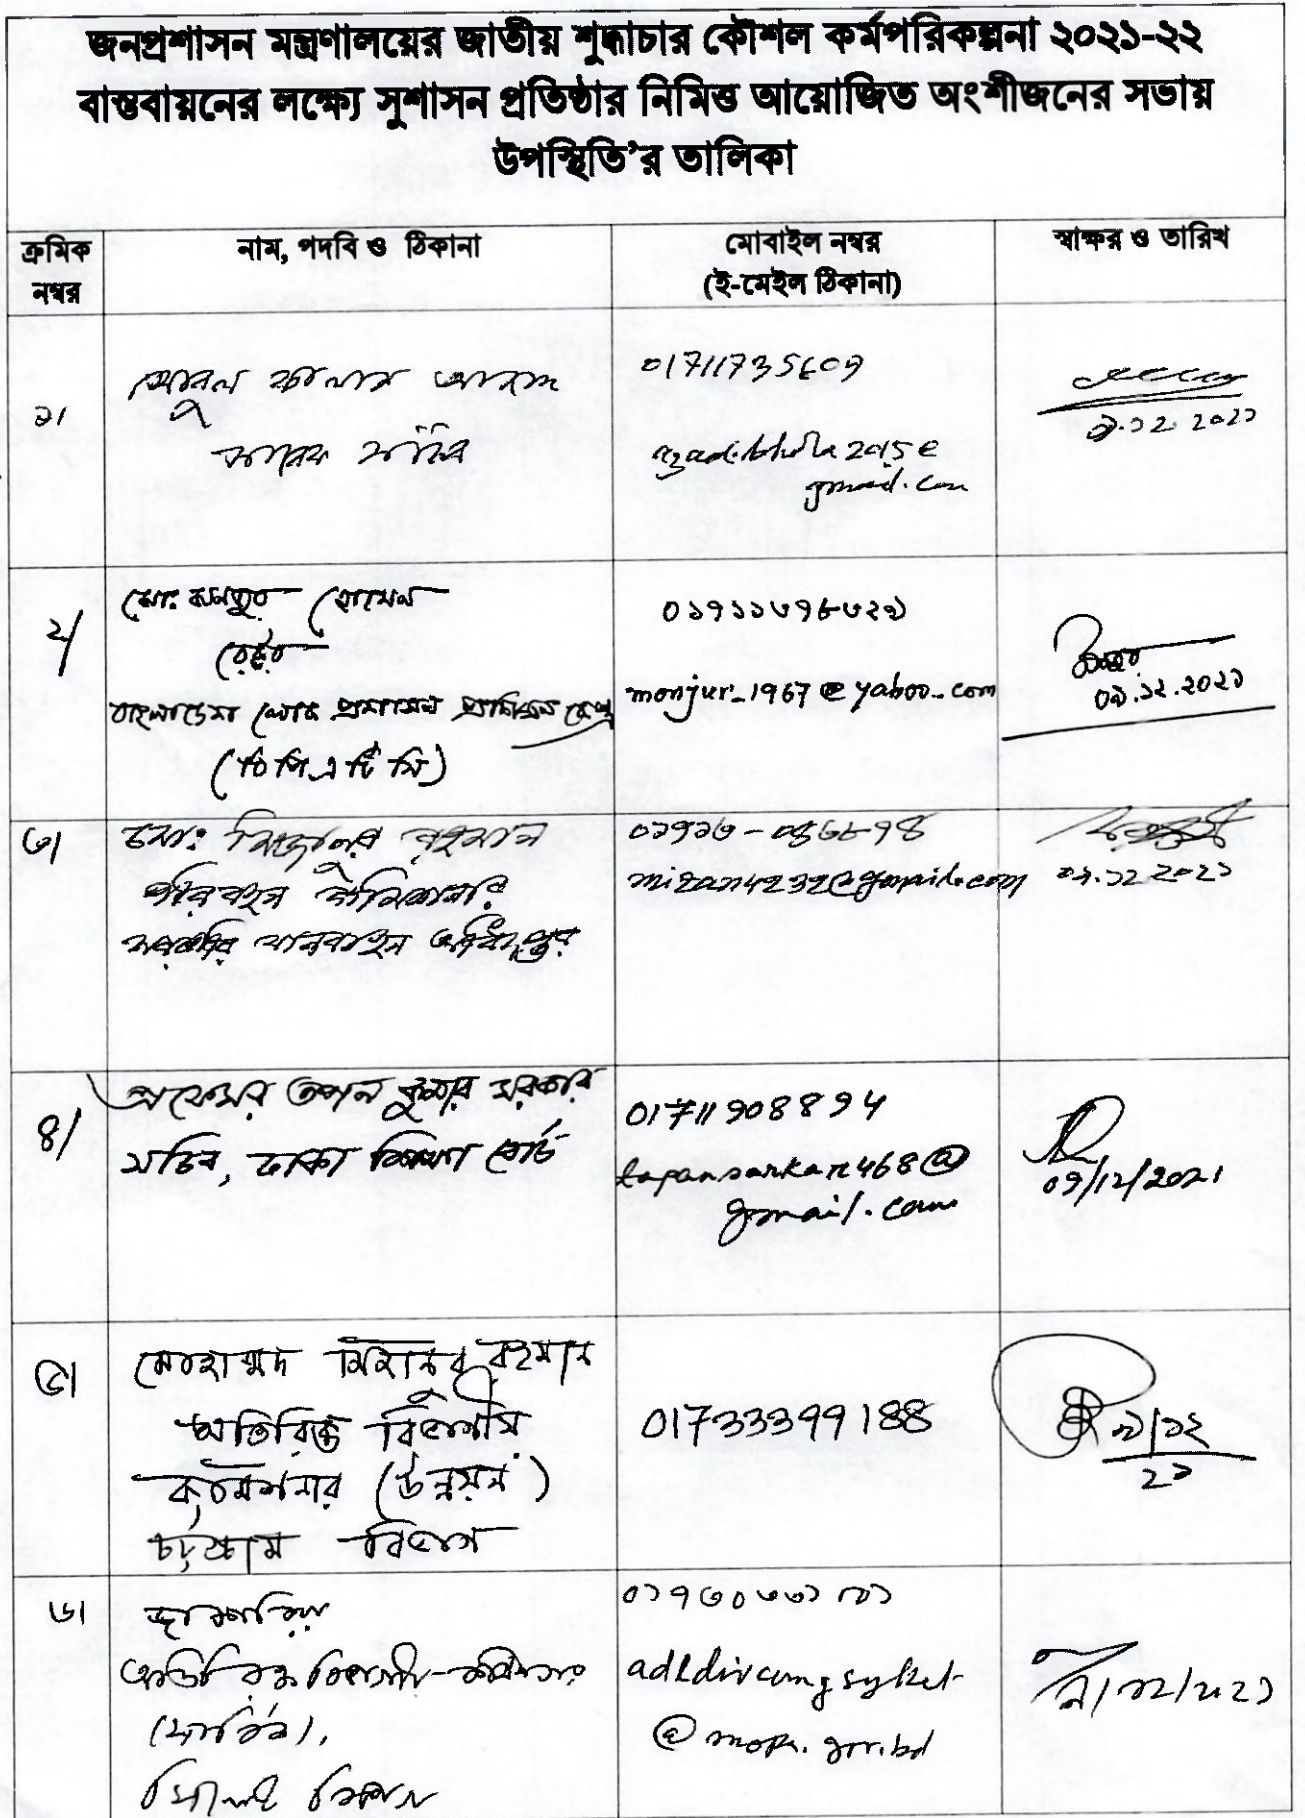 জনপ্রশাসন মন্ত্রণালয়ের জাতীয় শুদ্ধাচার কৌশল কর্মপরিকল্পনা ২০২১-২২
বাস্তবায়নের লক্ষ্যে সুশাসন প্রতিষ্ঠার নিমিত্ত আয়োজিত অংশীজনের সভায়
উপস্থিতি’র তালিকা
ক্রমিক নম্বর
নাম, পদবি ও ঠিকানা
মোবাইল নম্বর
(ই-মেইল ঠিকানা)
স্বাক্ষর ও তারিখ
১।
আবুল কালাম আজাদ
সাবেক সচিব
01711735609
gmail.com
৯.১২.২০২১
২/
মোঃ মনজুর হোসেন
রেক্টর
বাংলাদেশ লোক প্রশাসন প্রশিক্ষণ কেন্দ্র
(বিপিএটিসি)
monjur_1967@yahoo.com
০৯.১২.২০২১
৩।
মোঃ মিজানুর রহমান
পরিবহন কমিশনার
সরকারি যানবাহন অধিদপ্তর
mizan4232@gmail.com
০৯.১২.২০২১
৪/
প্রফেসর তপন কুমার সরকার
সচিব, ঢাকা শিক্ষা বোর্ড
01711908894
tapansarkar468@
gmail.com
09/12/2021
৫।
মোহাম্মদ মিজানুর রহমান
অতিরিক্ত বিভাগীয়
কমিশনার (উন্নয়ন)
চট্টগ্রাম বিভাগ
01733399188
৯/১২
২১
৬।
জাকারিয়া
অতিরিক্ত বিভাগীয় কমিশনার
(সার্বিক),
সিলেট বিভাগ
@mopa.gov.bd